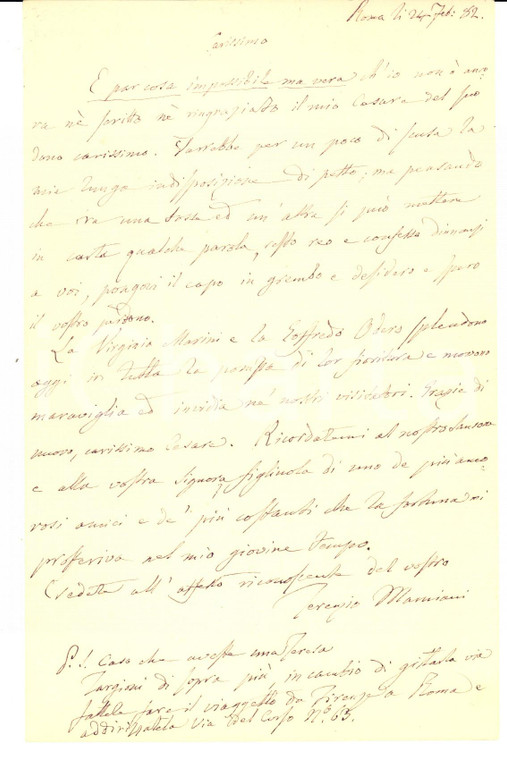 Roma li 24 Feb: 82.
Carissimo
E par cosa impossibile ma vera ch'io non ò anco-
ra nè scritto nè ringraziato il mio Cesare del suo
dono carissimo. Varrebbe per un poco di scusa la
mia lunga indisposizione di petto; ma pensando
che tra una tosse ed un'altra si può mettere
in carta qualche parola, resto reo e confesso dinanzi
a voi, pongovi il capo in grembo e desidero e spero
il vostro perdono.
La Virginia Marini e la Goffredo Odero splendono
oggi in tutta la pompa di lor fioritura e movono
maraviglia ed invidia ne' nostri visitatori. Grazie di
nuovo, carissimo Cesare. Ricordatemi al nostro
e alla vostra signora, figliuola di uno de' più amo-
rosi amici e de' più costanti che la fortuna mi
profferiva nel mio giovine tempo.
Credete all'affetto riconoscente del vostro
Terenzio Mamiani
P.S. Caso che aveste una Teresa
Targioni di sopra più, in cambio di gittarla via
fatele fare il viaggetto da Firenze a Roma e
addirizzatela Via del Corso N.° 63.